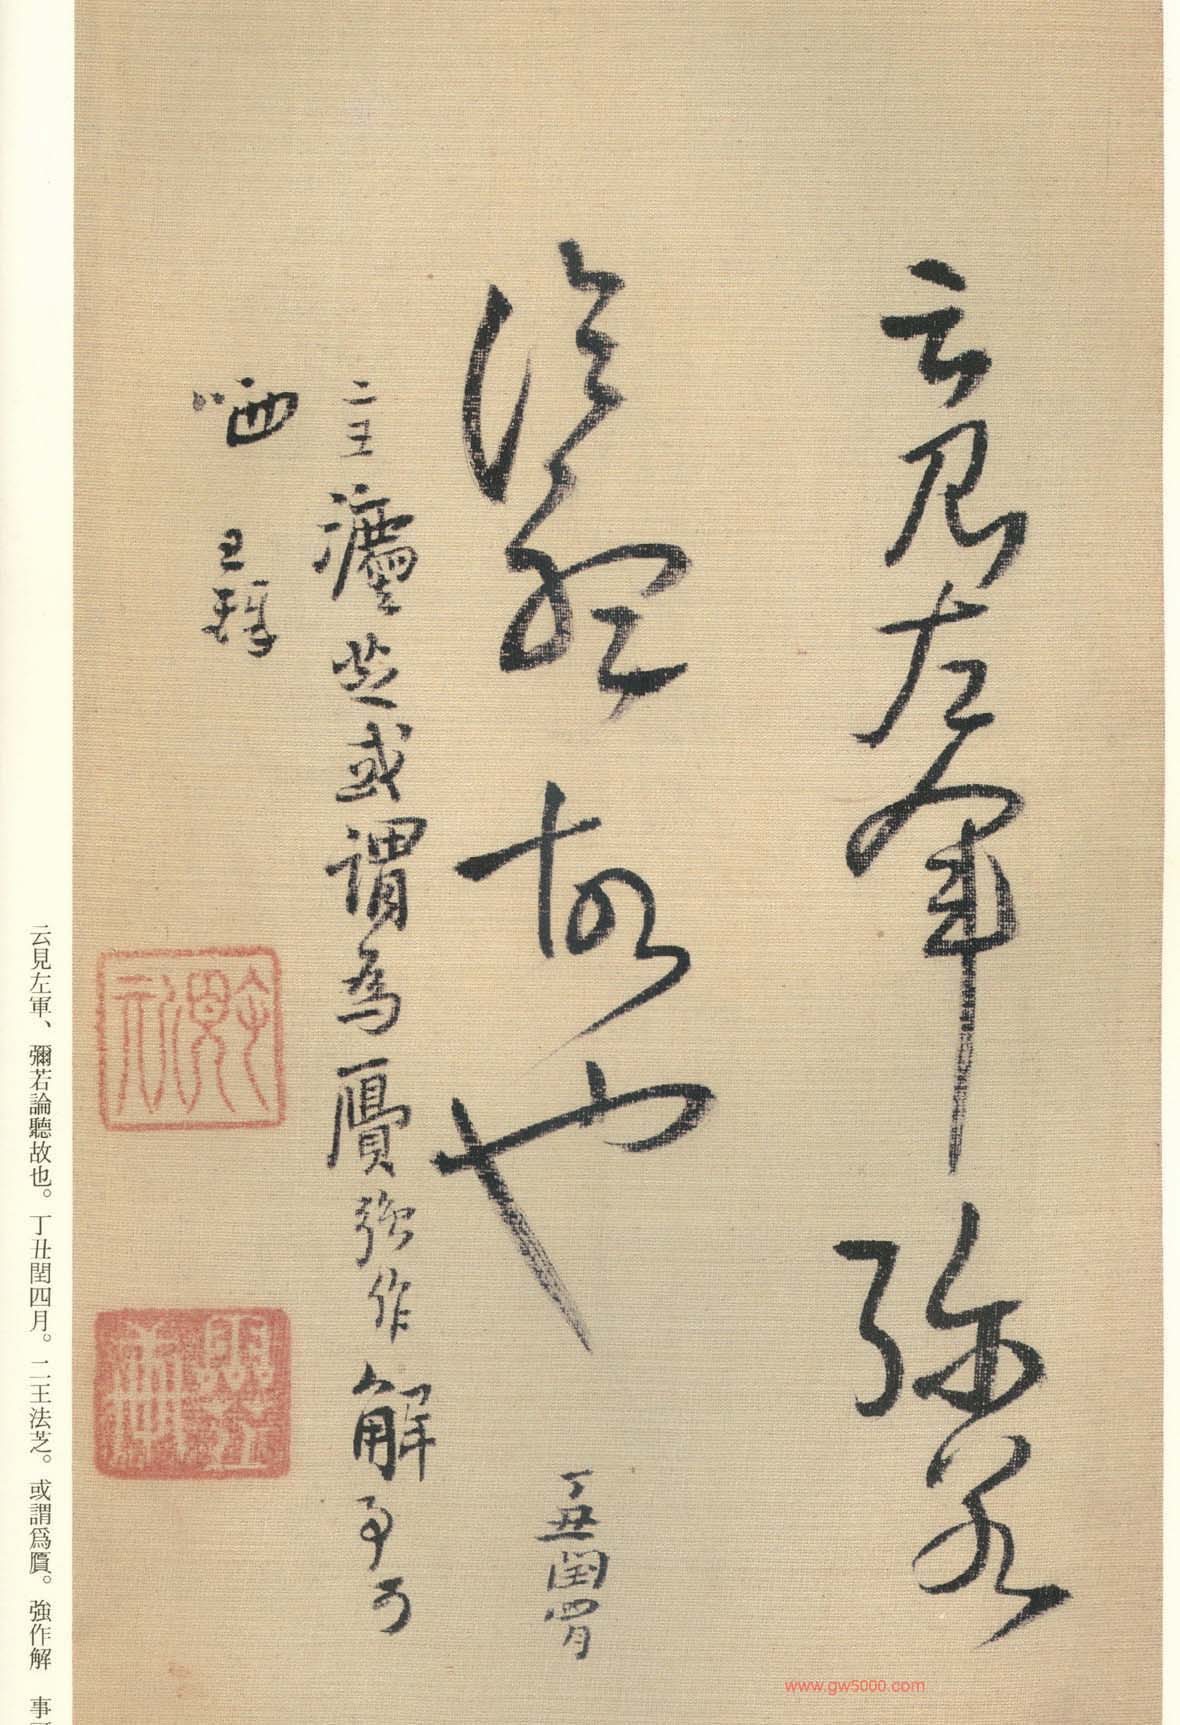 云見左軍彌若
論聽故也
丁丑閏四月
二王灋芝或謂為贗強作解事可
哂
云見左軍、彌若論聽故也。丁丑閏四月。二王法芝。或謂爲贋。強作解 事
www.gw5000.com